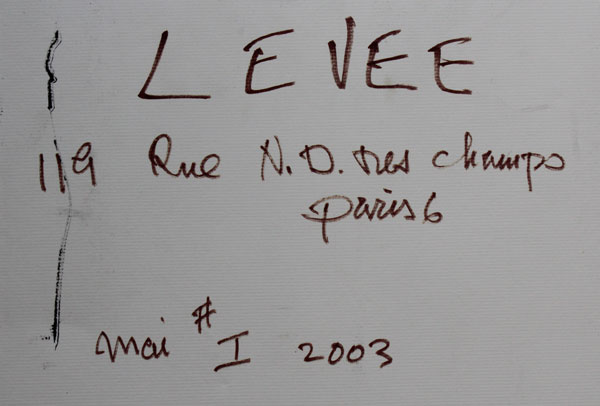 LEVEE
119 Rue N.D. des champs
Paris 6
Mai # I 2003